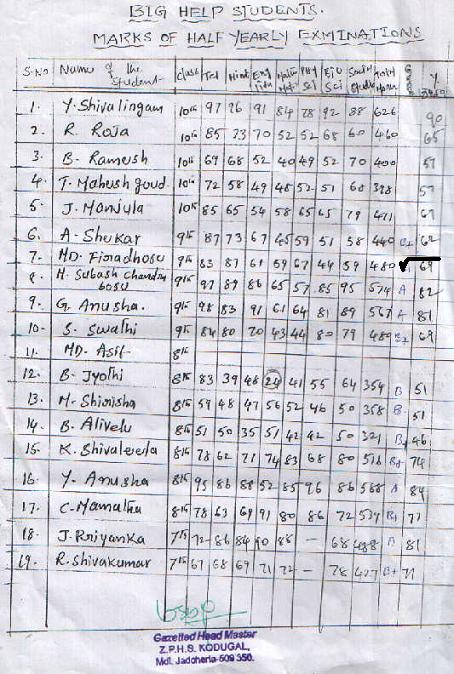 BIG HELP STUDENTS.
MARKS OF HALF YEARLY EXMINATIONS
S.No Name of the Student class Tel Hind Eng Phy Sci Social Total
1. Y. Shivalingam 10th 97 76 91 84 78 92 88 626 90
2. R. Raja 10th 85 73 70 52 52 68 60 460 65
3. B. Ramesh 10th 69 68 52 40 49 52 70 400 57
4. T. Mahesh goud 10th 72 58 49 48 52 51 68 398 57
5. J. Manjula 10th 85 65 54 58 65 65 79 471 67
6. A. Shekar 9th 87 73 67 45 59 51 58 440 B2 62
7. MD. 9th 83 87 61 59 67 64 59 480 69
8. H. Subash Chandra bosu 9th 97 89 86 65 57 85 95 574 A 82
9. G. Anusha. 9th 98 83 91 61 64 81 89 567 A 81
10. S. Swathi 9th 84 80 70 43 44 80 79 480 B2 69
11. MD. Asif 8th
12. B. Jyothi 8th 83 39 48 24 41 55 64 354 B 51
13. M. Shirisha 8th 59 48 47 56 52 46 50 358 B 51
14. B. Alivelu 8th 51 50 35 51 42 42 50 321 B 46
15. K. Shivaleela 8th 78 62 71 74 83 68 80 516 B+ 74
16. Y. Anusha 8th 95 86 88 52 85 96 86 588 A 84
17. C. Mamatha 8th 78 63 69 91 80 86 72 539 B+ 77
18. J. Priyanka 7th 72 86 84 90 88 - 68 488 A 81
19. R. Shivakumar 7th 67 68 69 71 72 - 78 427 B+ 71
Gazetted Head Master
Z.P.H.S. KODUGAL,
Mdl. Jadcherla-509 350.